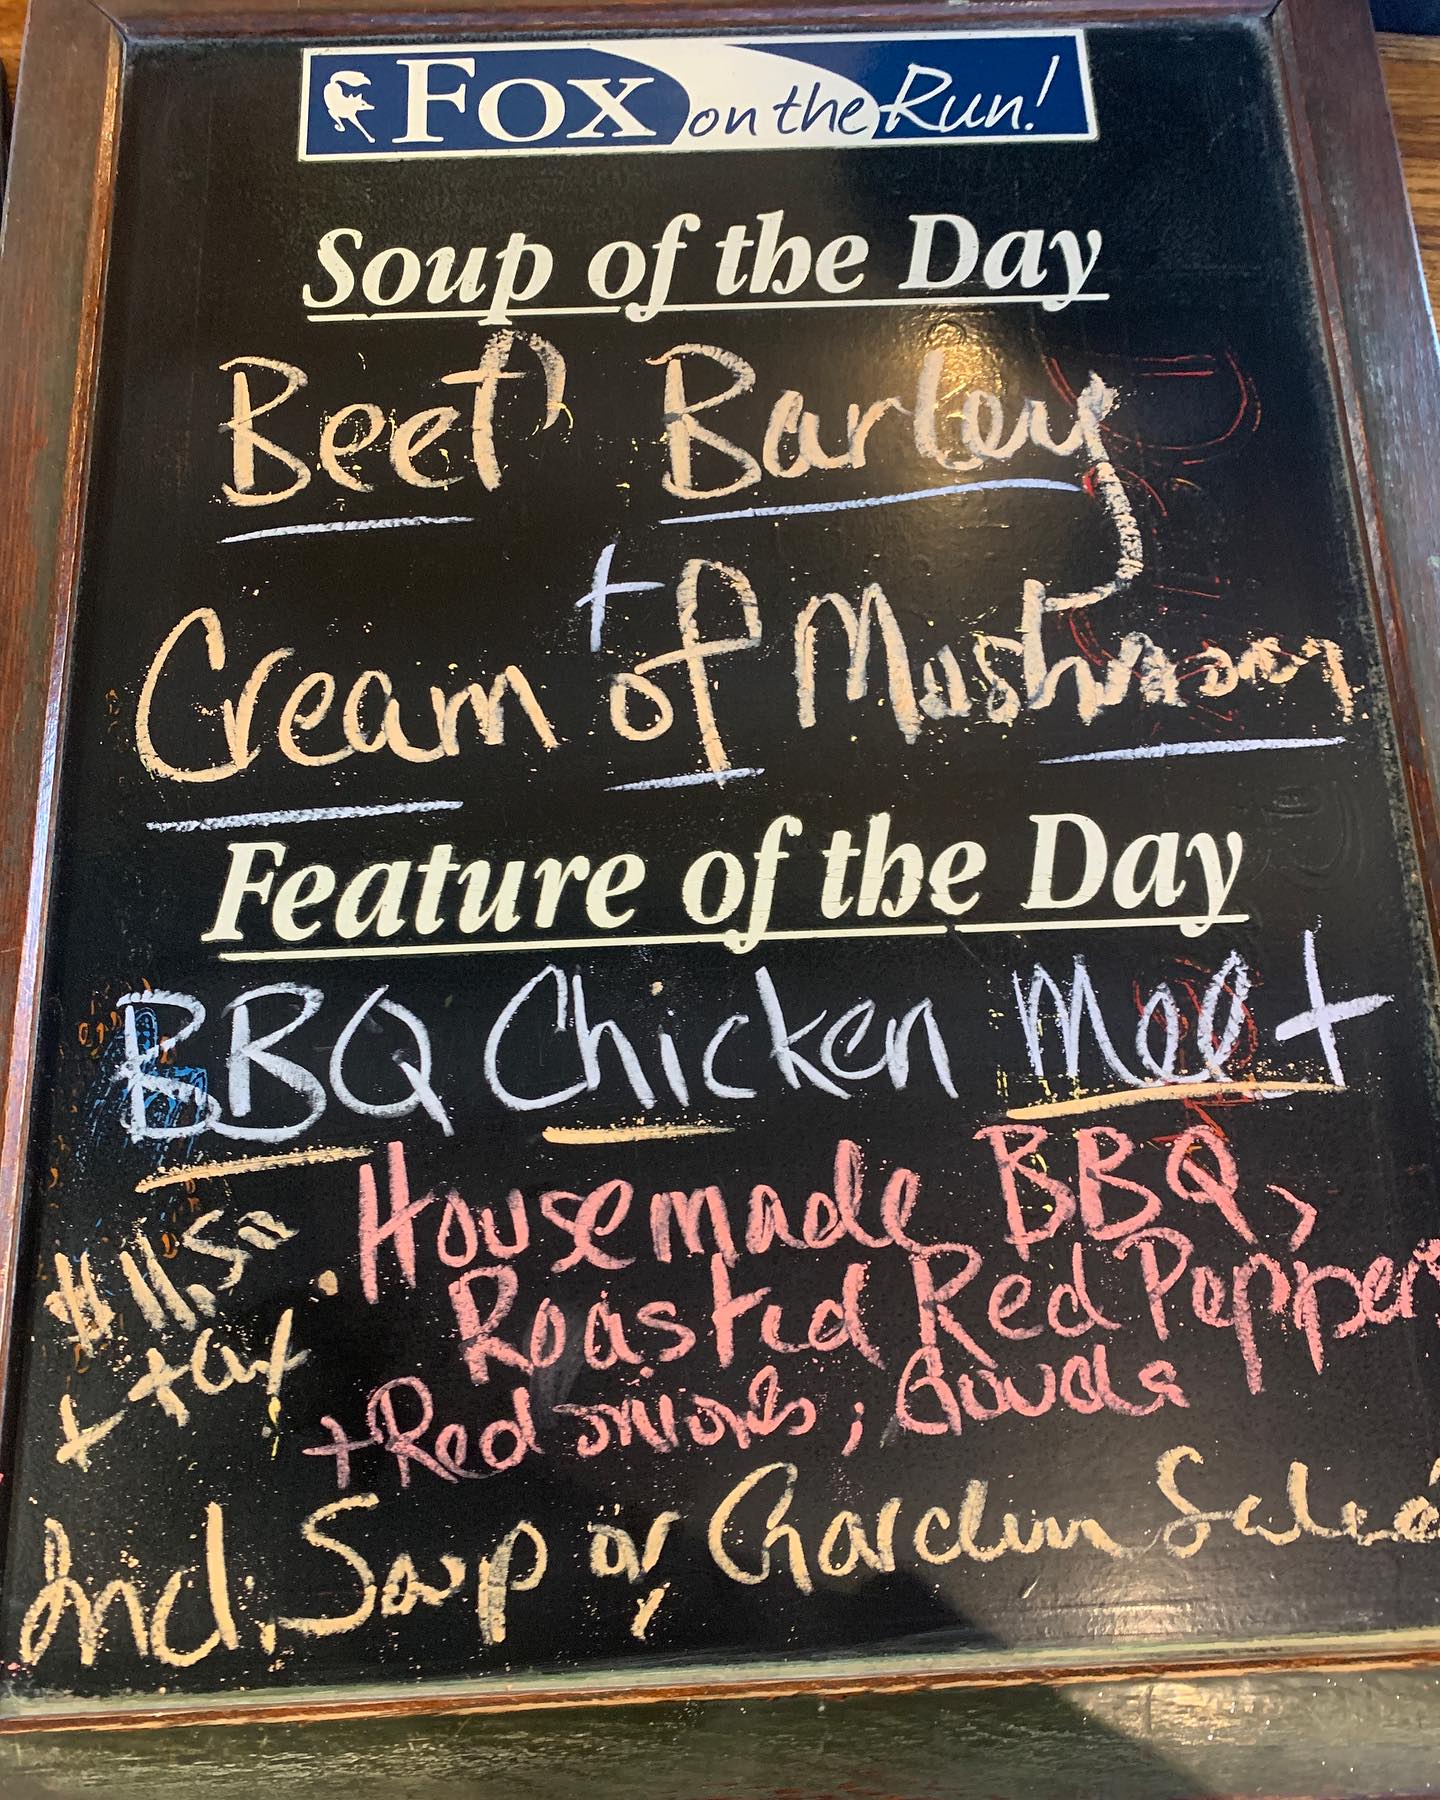 Fox on the Run!
Soup of the Day
Beef Barley
+
Cream of Mushroom
Feature of the Day
BBQ Chicken Melt
Housemade BBQ,
Roasted Red Peppers
+ Red onions, Gouda
$11.50
+ tax
Incl. Soup or Garden Salad